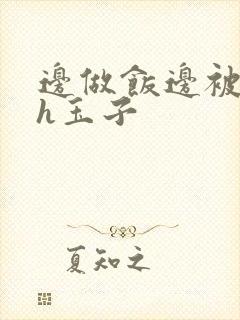 邊做飯邊被
h玉子
夏知之